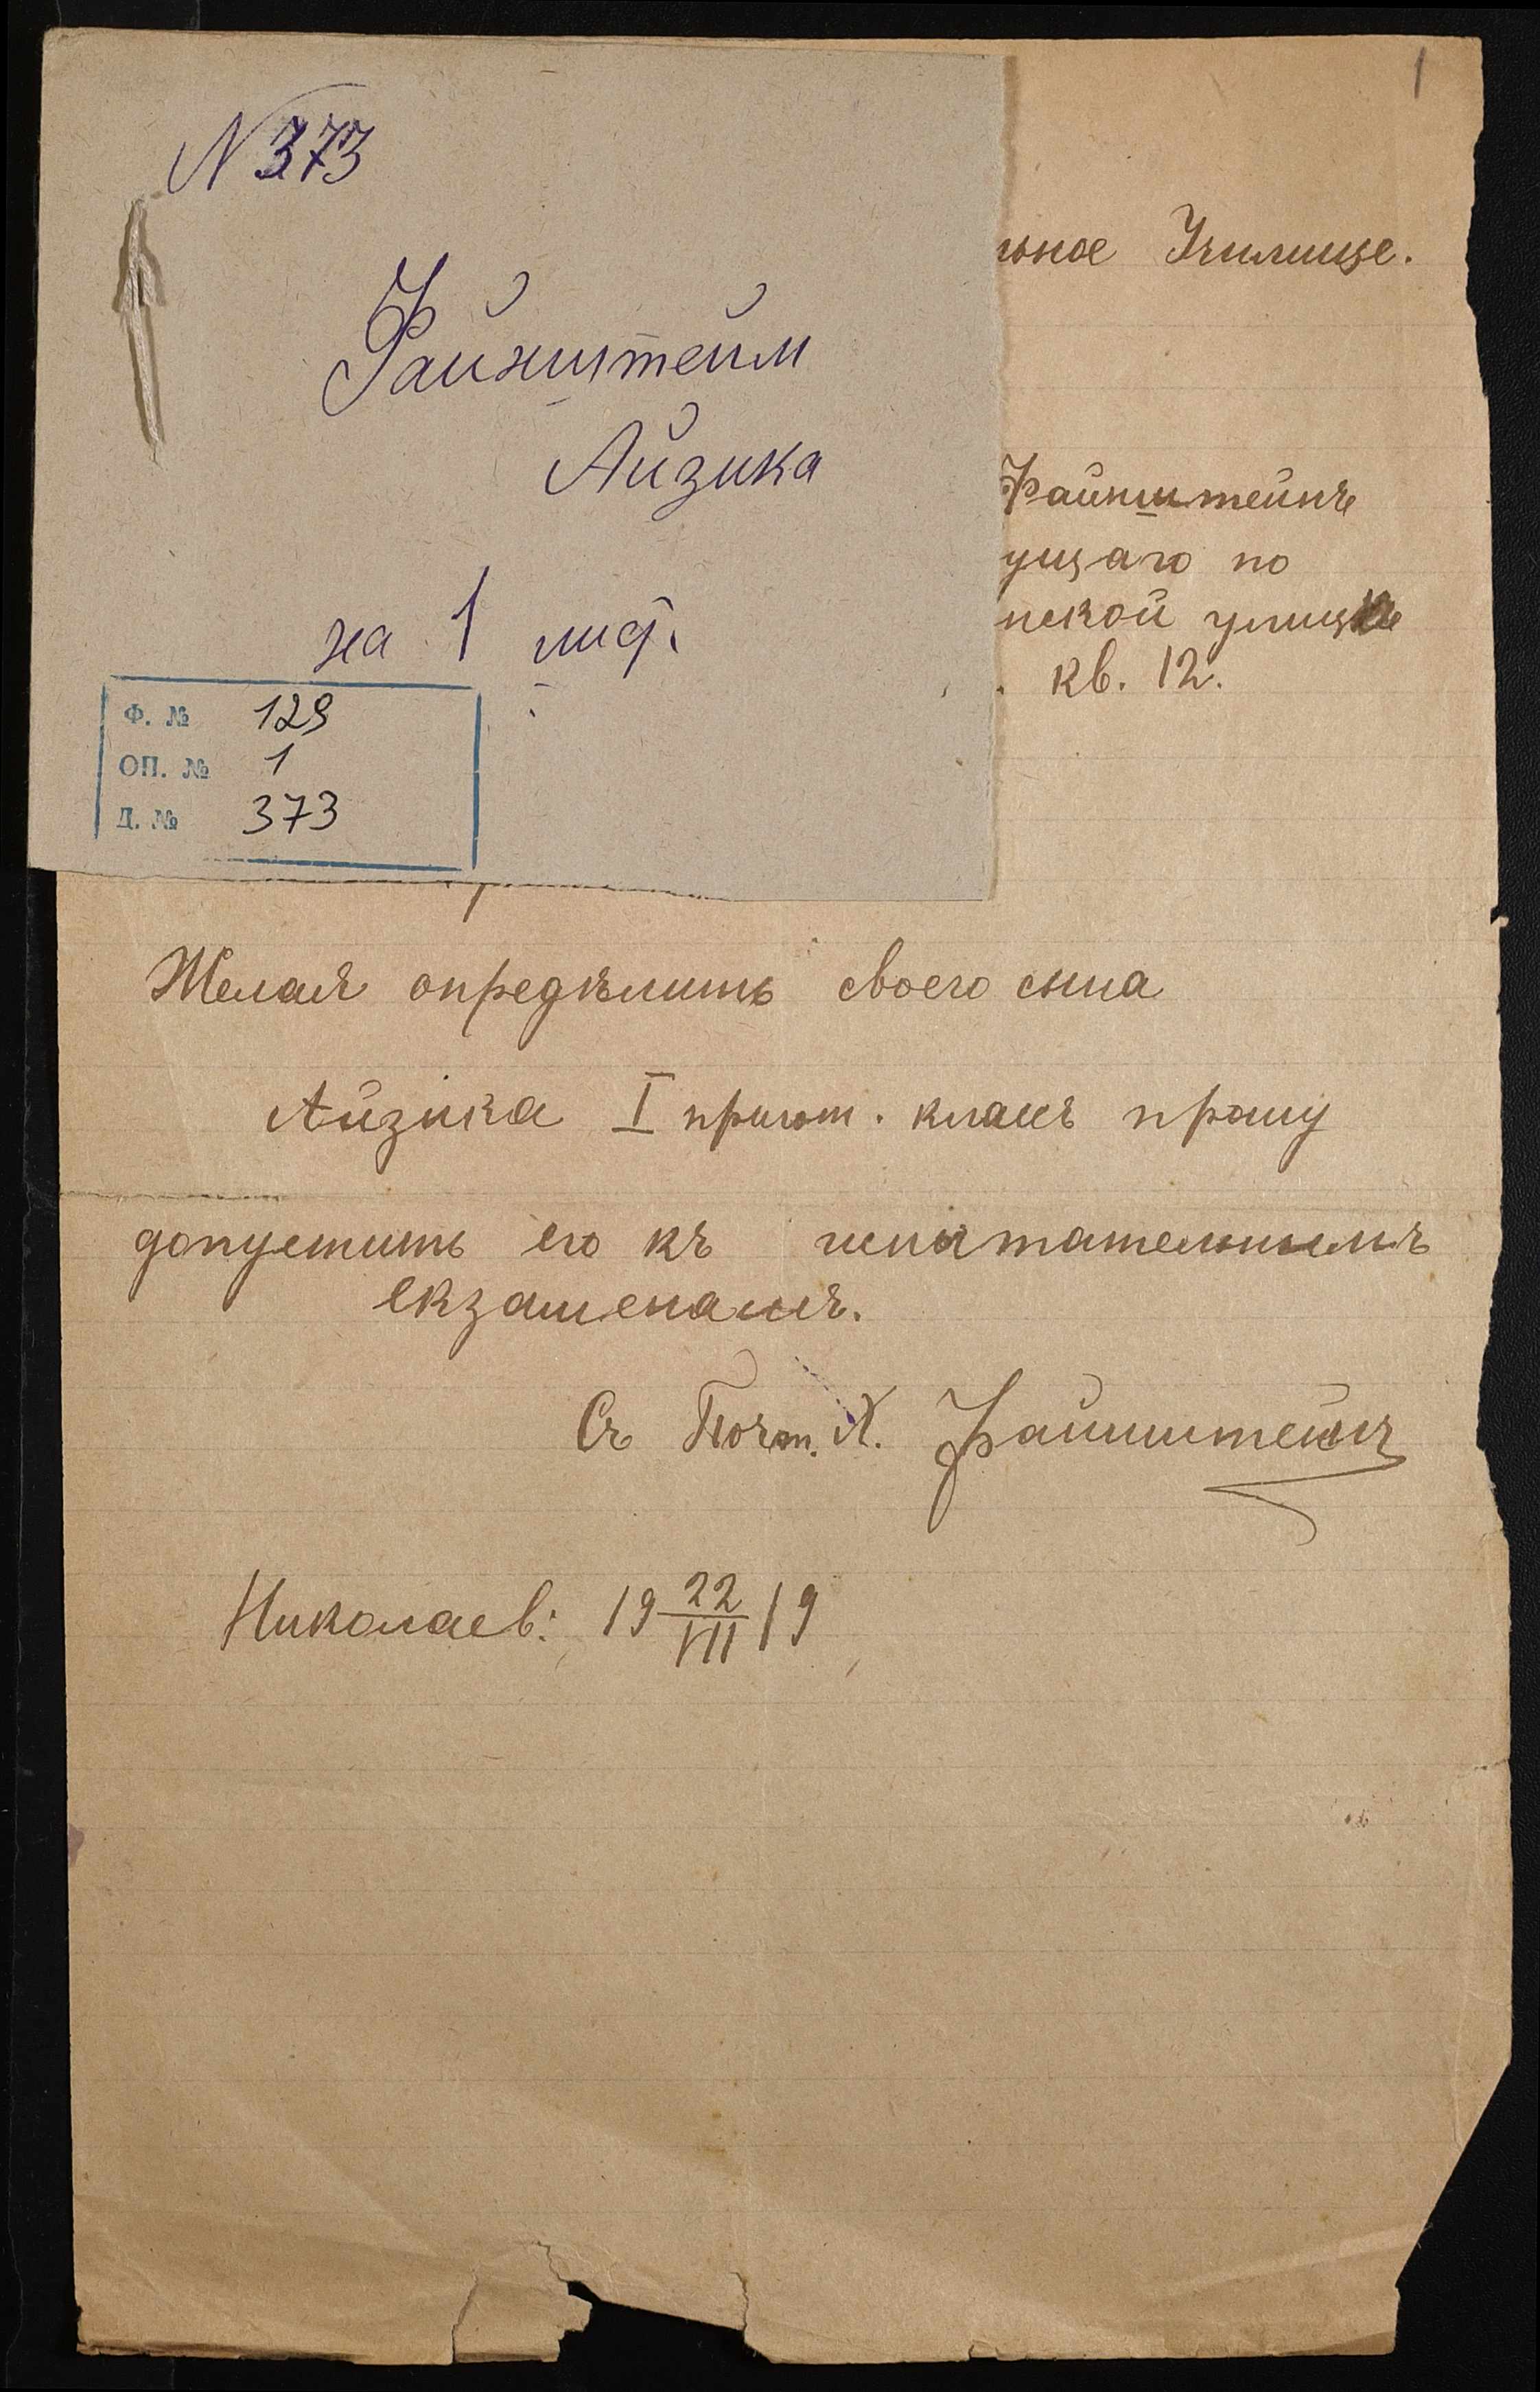 N 373
Файнштейн
Айзика
на 1 лист.
Ф. № 129
ОП. № 1
Д. № 373
1
ьное Училище.
Файнштейнъ
ущаго по
нской улицѣ
кв. 12.
Желая опредѣлить своего сына
Айзика I пригот. классъ прошу
допустить его къ испытательнымъ
екзаменамъ.
Съ Почт. Х. Файнштейнъ
Николаев: 19 22/VII 19